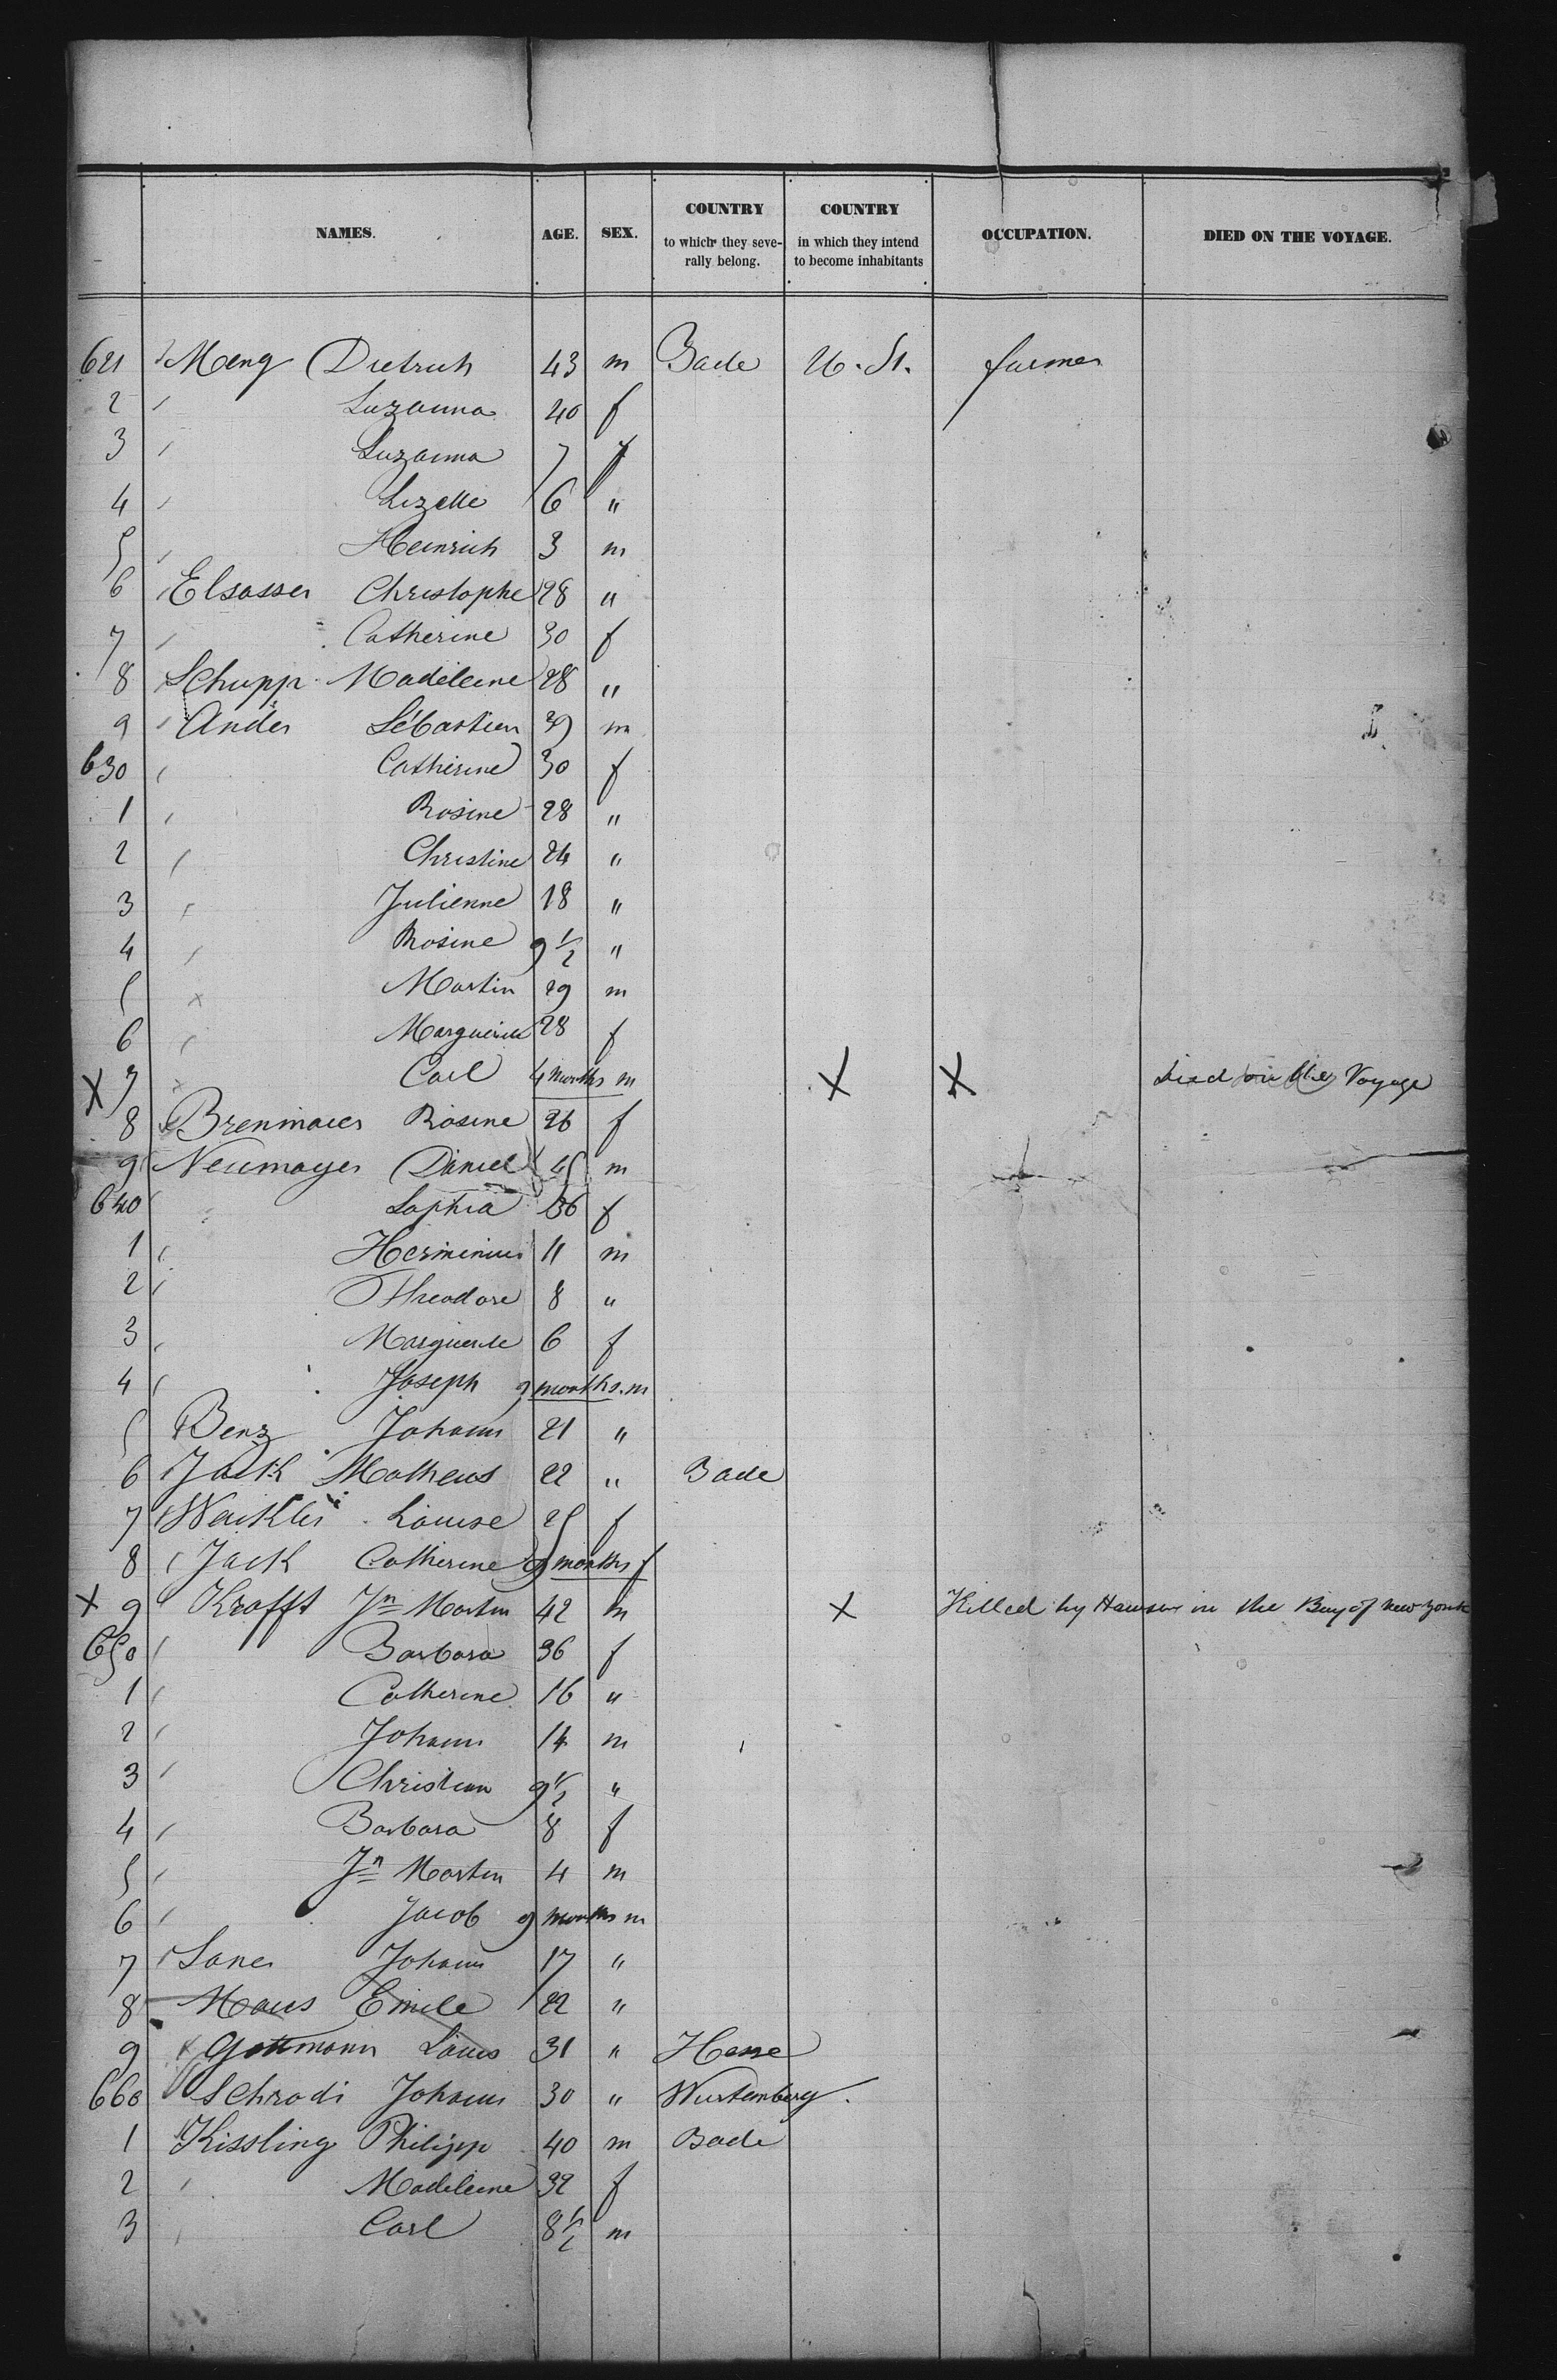 NAMES. AGE. SEX. COUNTRY to which they severally belong. COUNTRY in which they intend to become inhabitants OCCUPATION. DIED ON THE VOYAGE.
621 Meng Dietrich 43 m Bade U. St. farmer
2 " Suzanna 40 f
3 " Suzanna 7 f
4 " Lizette 6 "
5 " Heinrich 3 m
6 Elsasser Christophe 28 "
7 " Catherine 30 f
8 Schupp Madeleine 28 "
9 Ander Sébastien 39 m
630 " Catherine 30 f
1 " Rosine 28 "
2 " Christine 24 "
3 " Julienne 18 "
4 " Rosine 9 1/2 "
5 " Martin 29 m
6 " Marguerite 28 f
X 7 " Carl 4 months m X X Died on the Voyage
8 Brenmaier Rosine 26 f
9 Neumayer Daniel 45 m
640 " Sophia 36 f
1 " Herminius 11 m
2 " Theodore 8 "
3 " Marguerite 6 f
4 " Joseph 9 months. m
5 Benz Johann 21 "
6 Jack Matheus 22 " Bade
7 Louise 25 f
8 Jack Catherine 9 months f
X 9 Krafft Jn Martin 42 m X Killed by Hawser in the Bay of new york
650 " Barbara 36 f
1 " Catherine 16 "
2 " Johann 14 m
3 " Christian 9 1/2 "
4 " Barbara 8 f
5 " Jn Martin 4 m
6 " Jacob 9 months m
7 Johann 17 "
8 Maus Emile 22 "
9 Gottmann Louis 31 " Hesse
660 Schrodi Johann 30 " Wurtemberg.
1 Kissling Philipp 40 m Bade
2 " Madeleine 32 f
3 " Carl 8 1/2 m